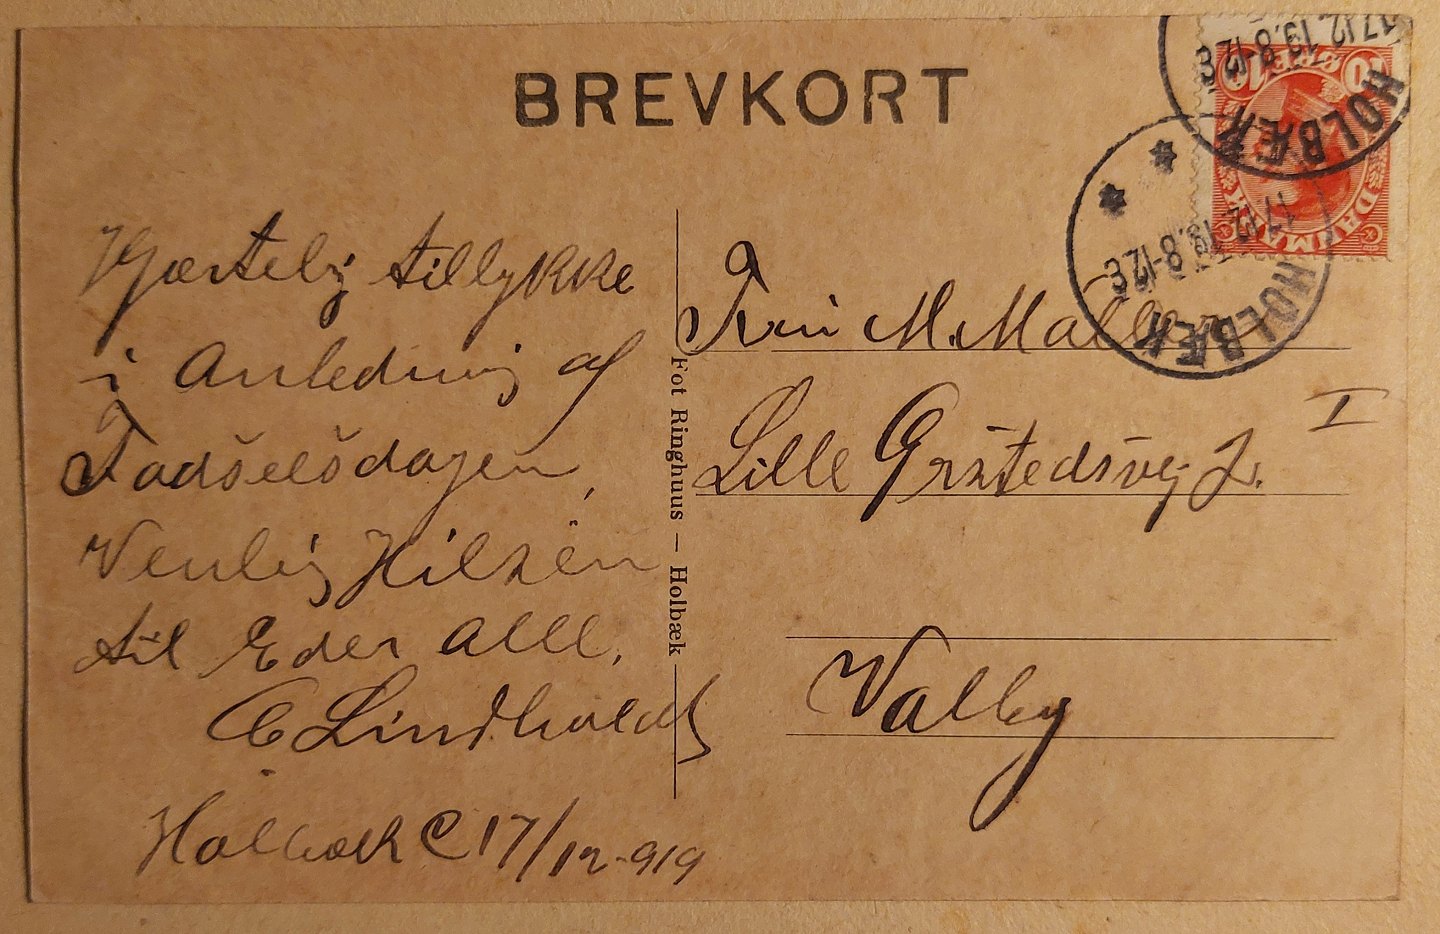 BREVKORT
Hjærtelig tillykke
i Anledning af
Fødselsdagen,
Venlig Hilsen
til Eder alle.
E Lindholdt
Holbæk C 17/12-919
Fot Ringhuus — Holbæk
Fru M. Møller
Lille Ørstedsvej 2. I
Valby
HOLBÆK
17.12.19.8-12E
HOLBÆK
17.12.19.8-12E
DANMARK
10 ØRE 10